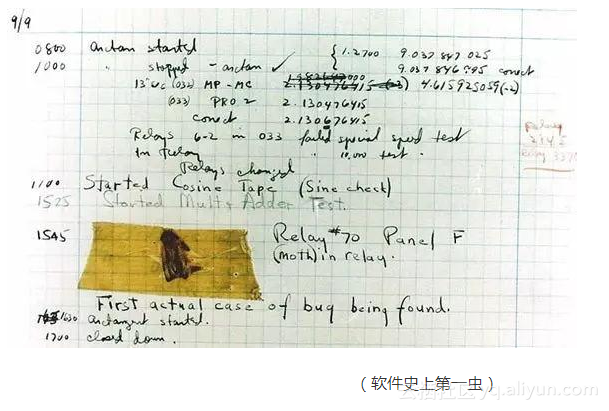 9/9
0800 arctan started
1000 " stopped - arctan ✓ { 1.2700 9.037 847 025
9.037 846 995 correct
13"uc (032) MP - MC 2.130476415 (-3) 4.615925059(-2)
(033) PRO 2 2.130476415
correct 2.130676415
Relays 6-2 in 033 failed special speed test
In Relay " 10,000 test.
Relays changed
1100 Started Cosine Tape (Sine check)
1525 Started Mult+Adder Test.
1545 Relay #70 Panel F
(moth) in relay.
First actual case of bug being found.
1630 arctangent started.
1700 closed down.
Relay
(软件史上第一虫)
yq.aliyun.com